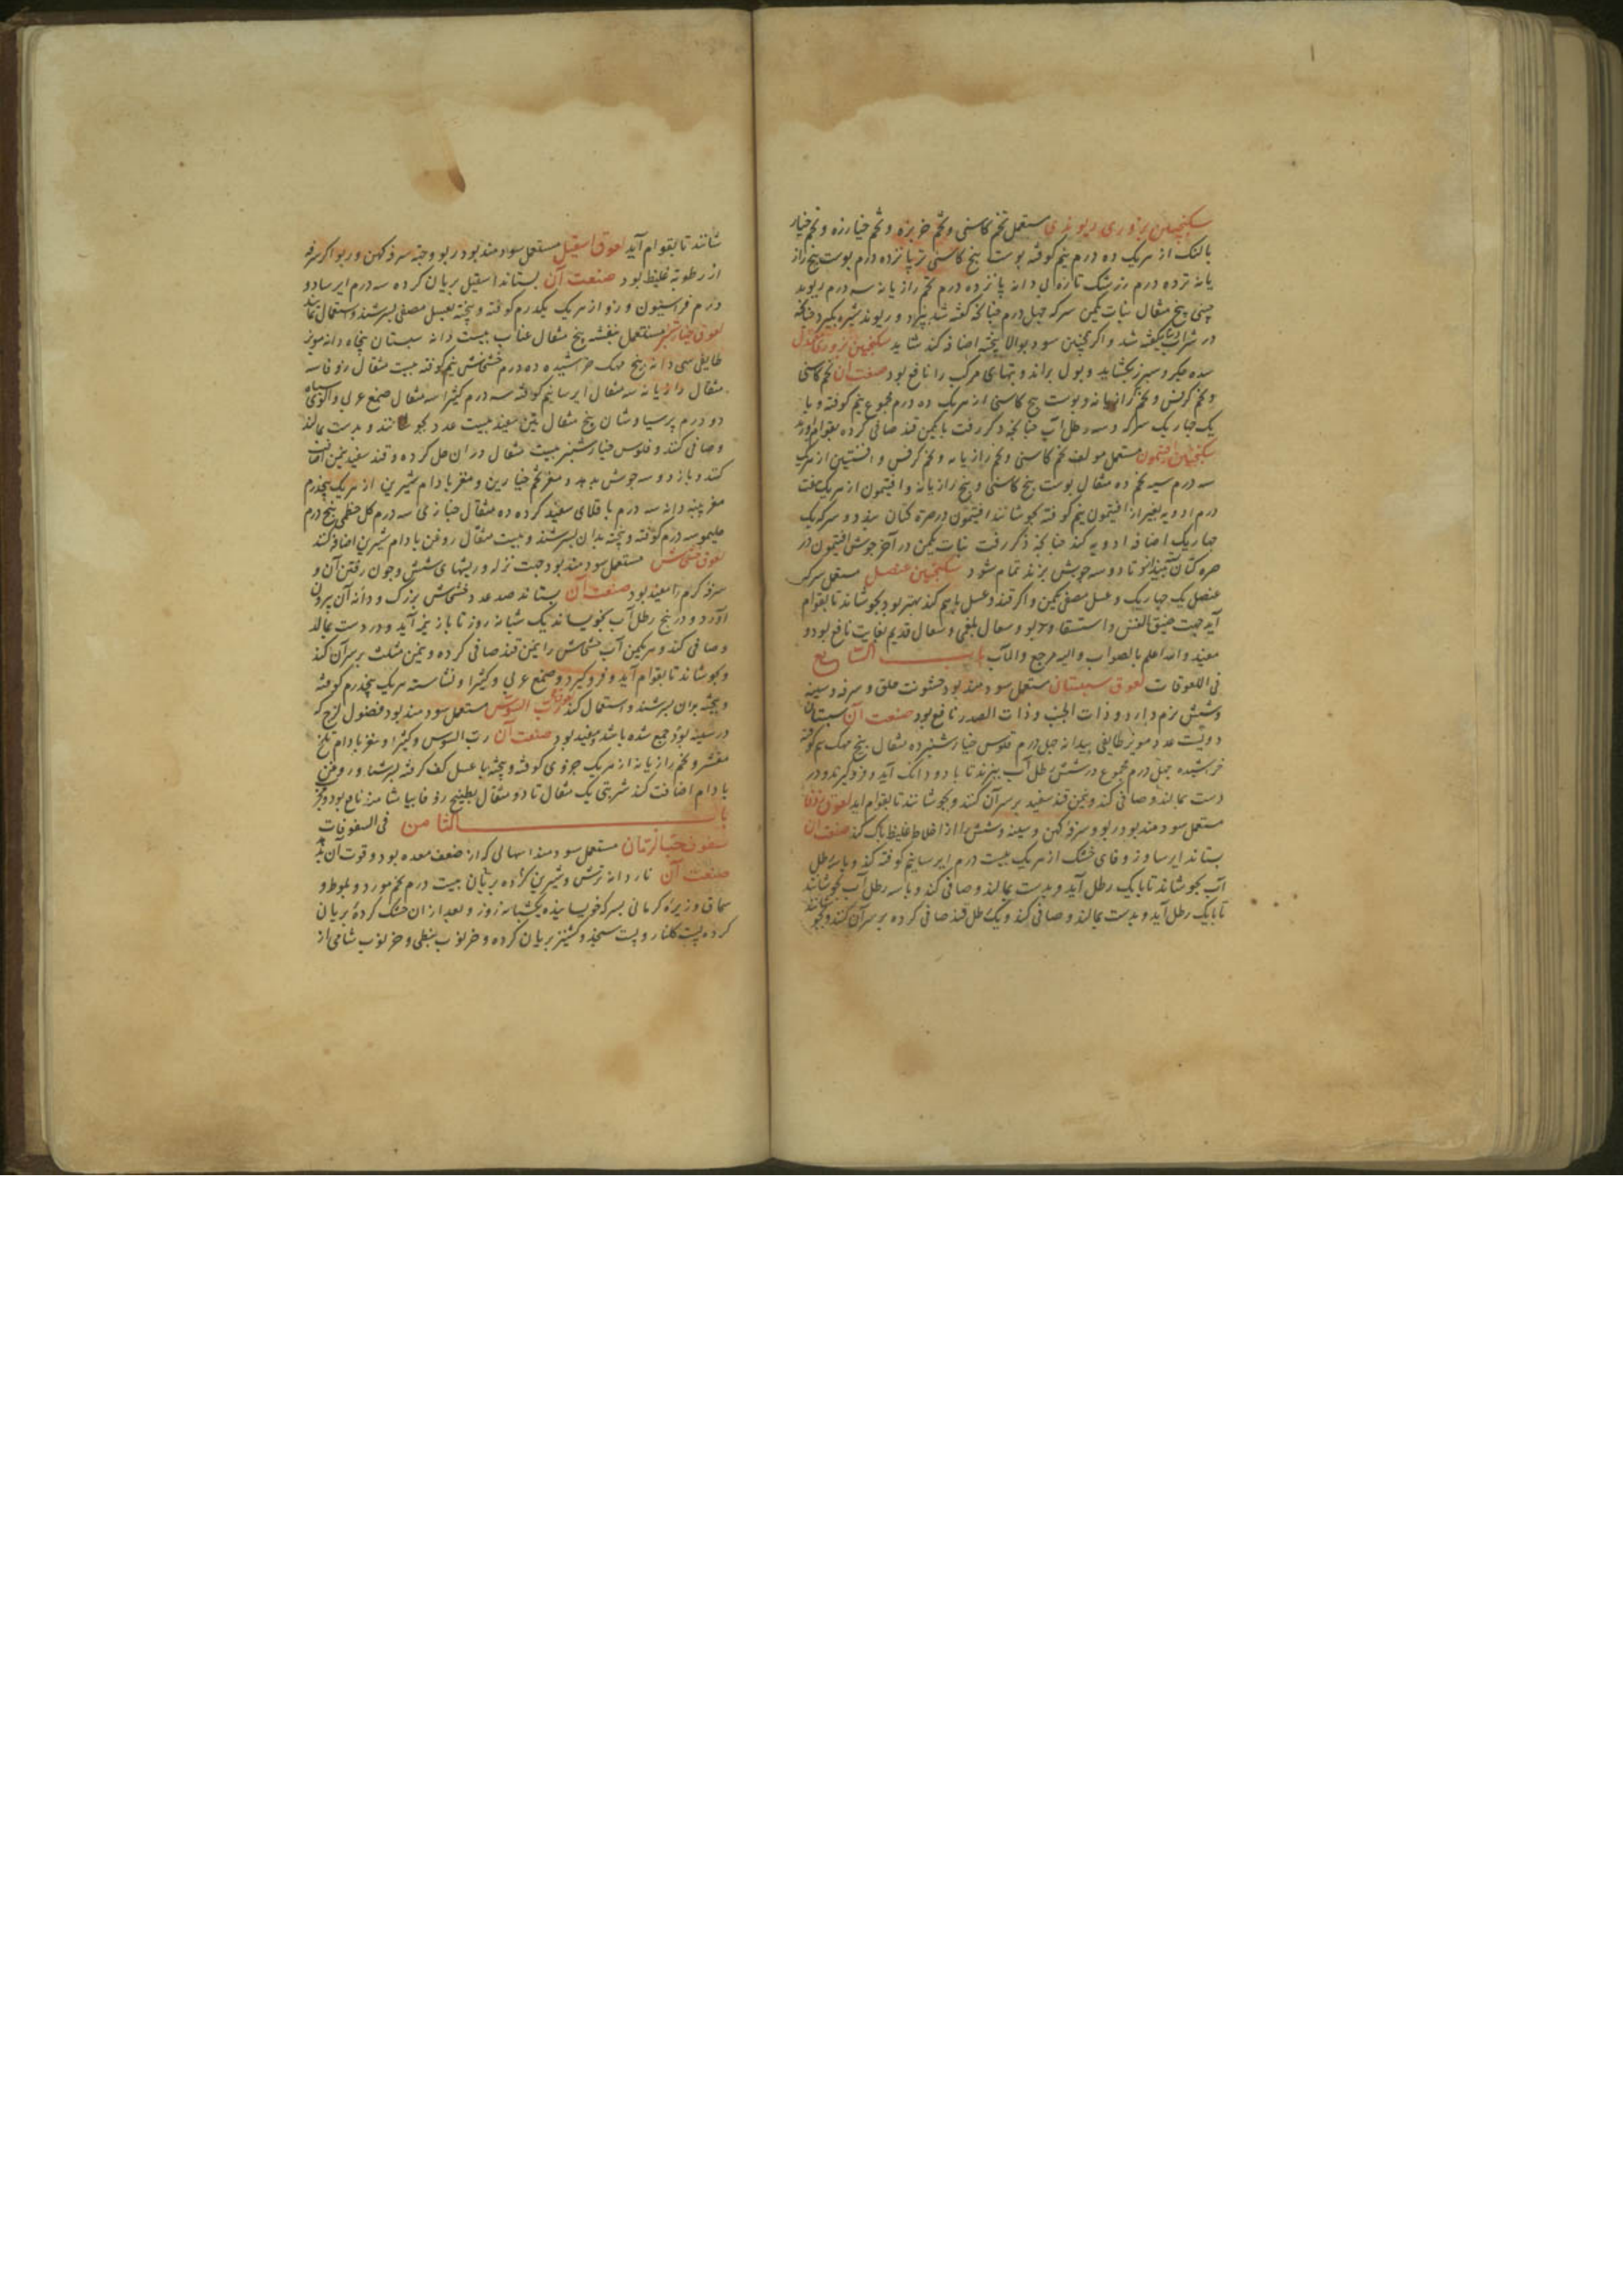 سکنجبین بزوری ریوندی مستعمل تخم کاسنی و تخم خربزه و تخم خیارزه و تخم خیار
بالنک از هریک ده درم نیم کوفته پوست بیخ کاسنی تر پانزده درم پوست بیخ راز
یانه نزده درم زرشک تازه بی دانه پانزده درم تخم رازیانه سه درم ریوند
چینی پنج مثقال نبات یکمن سرکه چهل درم چنانکه گفته شد بپزد و ریوند شیره بگیرد چنانکه
در شراب گفته شد و اکر همچنین سوده بوالا بیخته اضافه کند شاید سکنجبین بزوری معتدل
سده جگر و سپرز بگشاید و بول براند و تبهای مرکب را نافع بود صنعت آن تخم کاسنی
و تخم کرفس و تخم رازیانه و پوست بیخ کاسنی از هریک ده درم مجموع نیم کوفته و با
یک چهاریک سرکه و سه رطل آب چنانچه ذکر رفت بایکمن قند صافی کرده بقوام آورند
سکنجبین افتیمون مستعمل مولف تخم کاسنی و تخم رازیانه و تخم کرفس و افسنتین از هریک
سه درم سپید تخم ده مثقال پوست بیخ کاسنی و بیخ رازیانه و افتیمون از هریک هفت
درم ادویه بغیر از افتیمون نیم کوفته بجوشانند افتیمون در صره کتان بندد و سرکه یک
چهاریک اضافه ادویه کند چنانچه ذکر رفت نبات یکمن در آخر جوش افتیمون در
صره کتان تا دو سه جوش بزند تمام شود سکنجبین عنصل مستعمل سرکه
عنصل یک چهاریک و عسل مصفی یکمن و اکر قند و عسل باهم کند بهتر بود بجوشاند تا بقوام
آید جهت ضیق النفس و استسقا و ربو و سعال بلغمی و سعال قدیم بغایت نافع بود و
مفید والله اعلم بالصواب والیه مرجع والمآب باب السابع
فی اللعوقات لعوق سپستان مستعمل سودمند بود خشونت حلق و سرفه و سینه
و شش نرم دارد و ذات الجنب و ذات الصدر نافع بود صنعت آن سپستان
دویست عدد مویز طایفی بیدانه چهل درم فلوس خیارشنبر ده مثقال بیخ مهک نیم کوفته
خراشیده چهل درم مجموع در شش رطل آب بپزند تا با دو دانک آید و فروکیرند و در
دست بمالند و صافی کند و یمن قند سفید بر سر آن کنند و بجوشانند تا بقوام آید لعوق زوفا
مستعمل سودمند بود ربو و سرفه کهن و سینه و شش را از اخلاط غلیظ پاک کند صنعت آن
بستاند ایرسا و زوفای خشک از هریک بیست درم ایرسا نیم کوفته کند و با سه رطل
آب بجوشاند تا با یک رطل آید و بدست بمالند و صافی کند و با سه رطل آب بجوشانند
تا بایک رطل آید و بدست بمالند و صافی کند و یک رطل قند صافی کرده بر سر آن کنند و بجو
شانند تا بقوام آید لعوق اسقیل مستعمل سودمند بود ربو و جهت سرفه کهن و ربو اکر سرفه
از رطوبة غلیظ بود صنعت آن بستاند اسقیل بریان کرده سه درم ایرسا دو
درم فراسیون و زوفا از هریک یکدرم کوفته و بیخته بعسل مصفی بسرشند و استعمال نمایند
لعوق خیارشنبر مستعمل بنفشه پنج مثقال عناب بیست دانه سپستان پنجاه دانه مویز
طایفی سی دانه بیخ مهک خراشیده ده درم خشخاش نیم کوفته بیست مثقال زوفا سه
مثقال رازیانه سه مثقال ایرسا نیم کوفته سه درم کتیرا سه مثقال صمغ عربی و آلوی سیاه
دو درم پرسیاوشان پنج مثقال تین سفید بیست عدد بجوشانند و بدست بمالند
و صافی کنند و فلوس خیارشنبر بیست مثقال در ان حل کرده و قند سفید یمن اضافت
کنند و باز دو سه جوش بدهد و مغز تخم خیارین و مغز بادام شیرین از هریک پنجدرم
مغز پنبه دانه سه درم باقلای سفید کرده ده مثقال خبازی سه درم کل خطمی پنج درم
سه درم کوفته و بیخته بدان بسرشند و بیست مثقال روغن بادام شیرین اضافه کنند
لعوق خشخاش مستعمل سودمند بود جهت نزله و ریشهای شش و خون رفتن آن و
سرفه کرم را مفید بود صنعت آن بستاند صد عدد خشخاش بزرک و دانه آن بیرون
آورد و در پنج رطل آب بخیساند یک شبانه روز تا باز نیمه آید و در دست بمالد
و صافی کند و هر یکمن آب خشخاش را یمن قند صافی کرده و یمن مثلث بر سر آن کند
و بجوشاند تا بقوام آید و فروکیرد و صمغ عربی و کتیرا و نشاسته هریک پنجدرم کوفته
و بیخته بدان بسرشند و استعمال کند لعوق رب السوس مستعمل سودمند بود فضول لزج که
در سینه بود جمع شده باشد مفید بود صنعت آن رب السوس و کتیرا و مغز بادام تلخ
مقشر و تخم رازیانه از هریک جزوی کوفته و بیخته با عسل کف کرفته بسرشد و روغن
بادام اضافت کند شربتی یک مثقال تا دو مثقال بطبیخ زوفا بیاشامند نافع بود و مجرب
باب الثامن فی السفوفات
سفوف حب الرمان مستعمل سودمند اسهالی که از ضعف معده بود و قوت آن بدهد
صنعت آن نار دانه ترش و شیرین کرده بریان بیست درم تخم مورد و بلوط و
سماق و زیره کرمانی بسرکه خویسانیده یک شبانه روز و بعد از ان خشک کرده بریان
کرده پست کلنار و پست سنجد و کشنیز بریان کرده و خرنوب نبطی و خرنوب شامی از